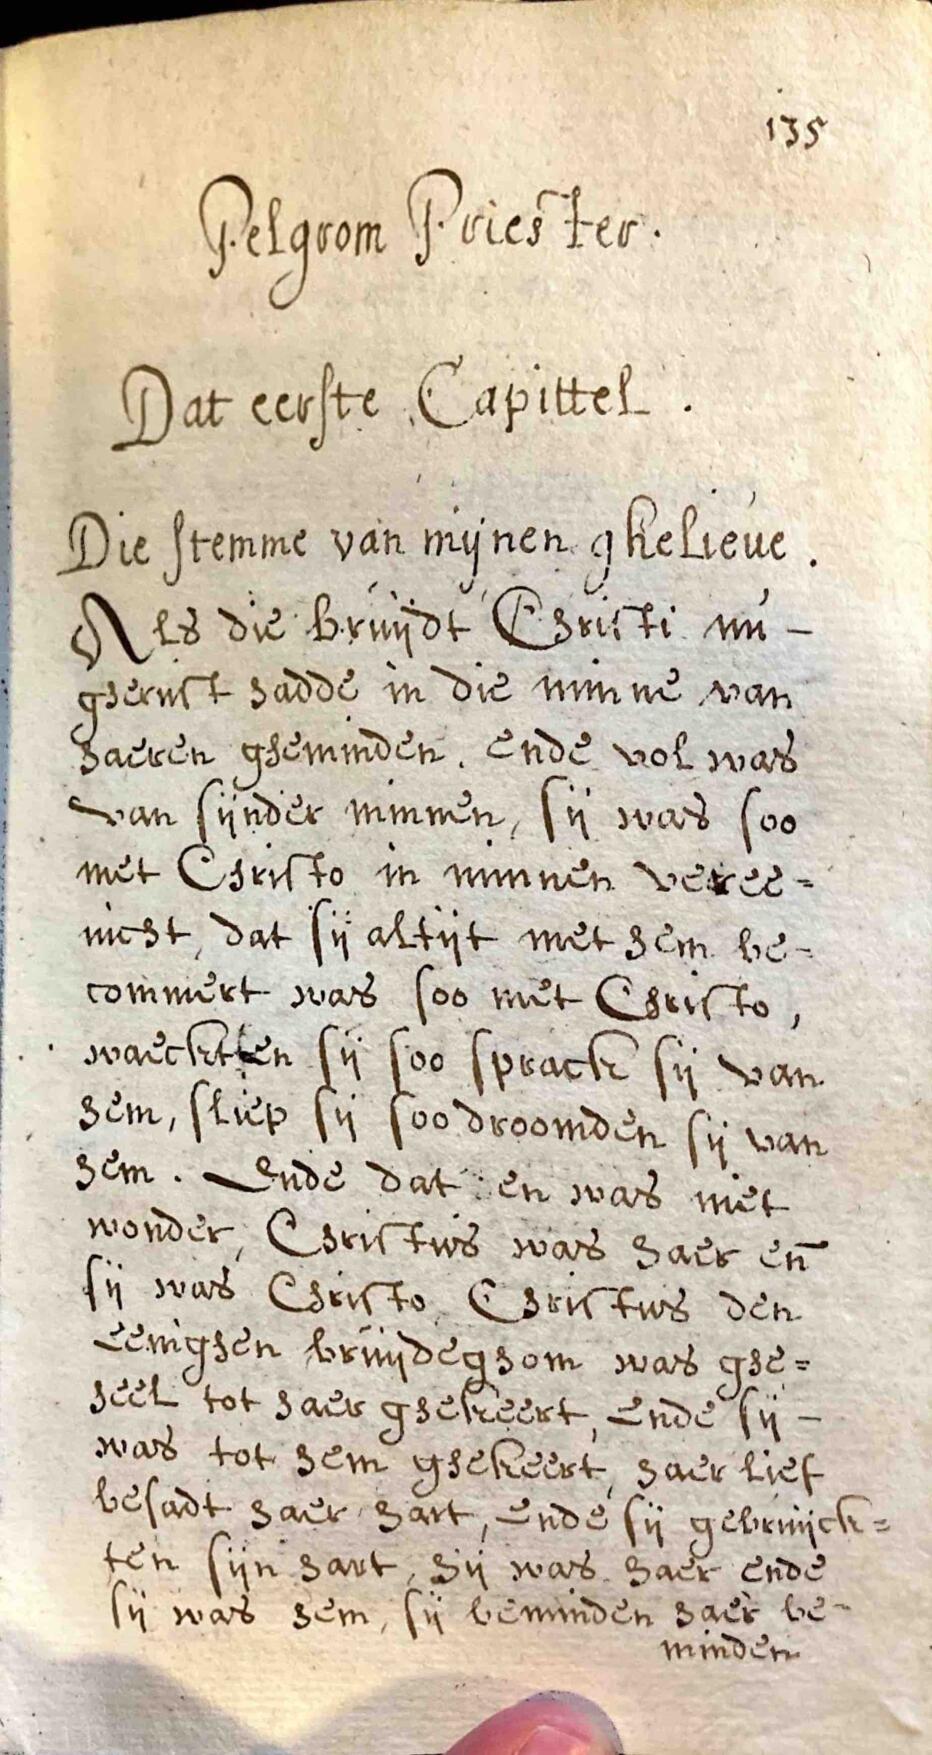 135
Pelgrom Priester.
Dat eerste Capittel.
Die stemme van mijnen ghelieue.
Als die bruijdt Christi nu –
gherust hadde in die minne van
haeren gheminden. ende vol was
van sijnder minnen, sij was soo
met Christo in minnen veree=
nicht, dat sij altijt met hem be=
commert was soo met Christo,
waeckten sij soo sprack sij van
hem, sliep sij soo droomden sij van
hem. Ende dat en was niet
wonder, Christus was haer en̄
sij was Christo, Christus den
eenighen bruijdeghom was ghe=
heel tot haer ghekeert, ende sij –
was tot hem ghekeert, haer lief
besadt haer hart, ende sij gebruijck=
ten sijn hart, hij was haer ende
sij was hem, sij beminden haer be=
minden